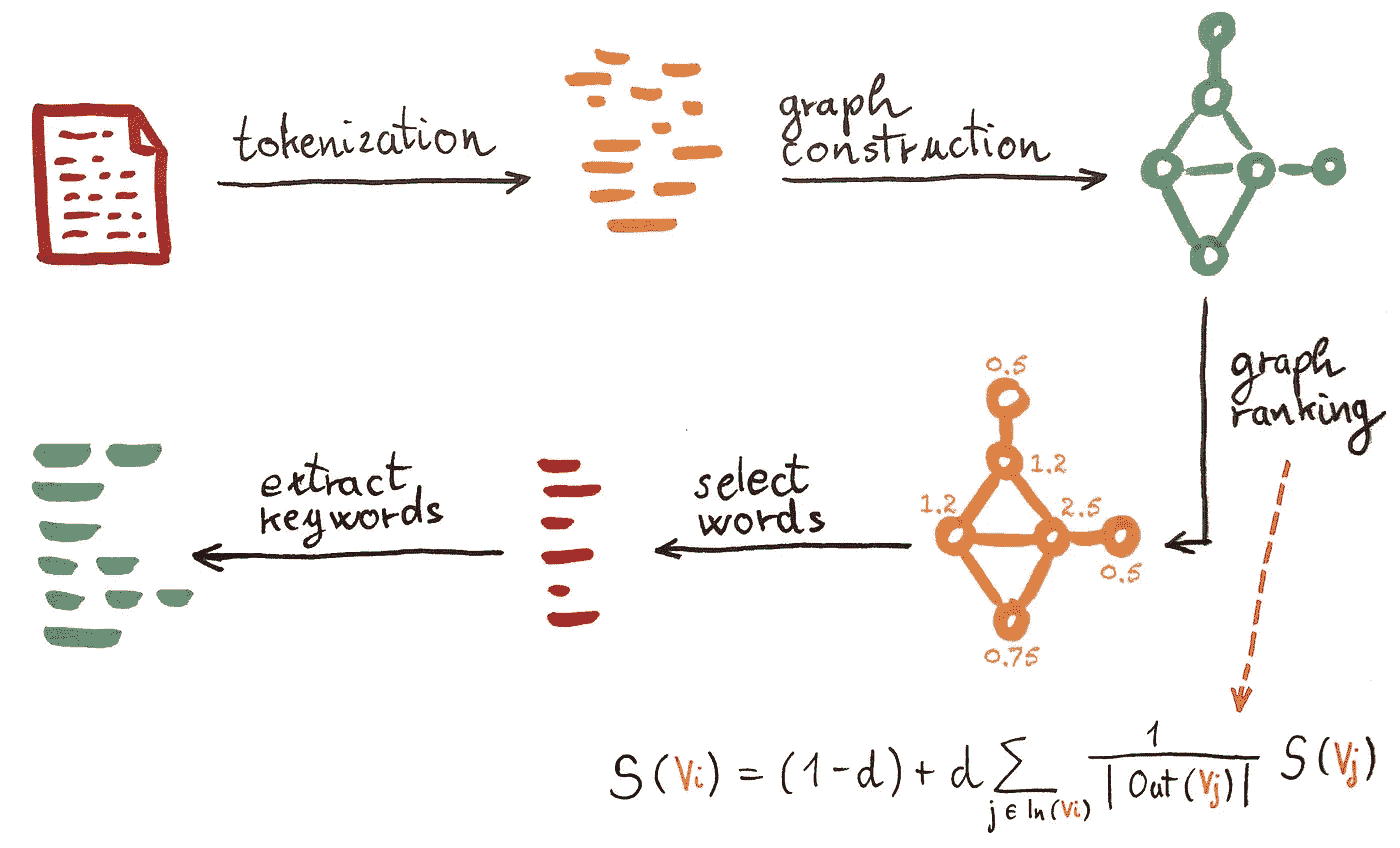 tokenization
graph
construction
graph
ranking
0.5
1.2
1.2
2.5
0.5
0.75
select
words
extract
keywords
S(Vi) = (1-d) + d ∑ j ∈ In(Vi) 1 / |Out(Vj)| S(Vj)